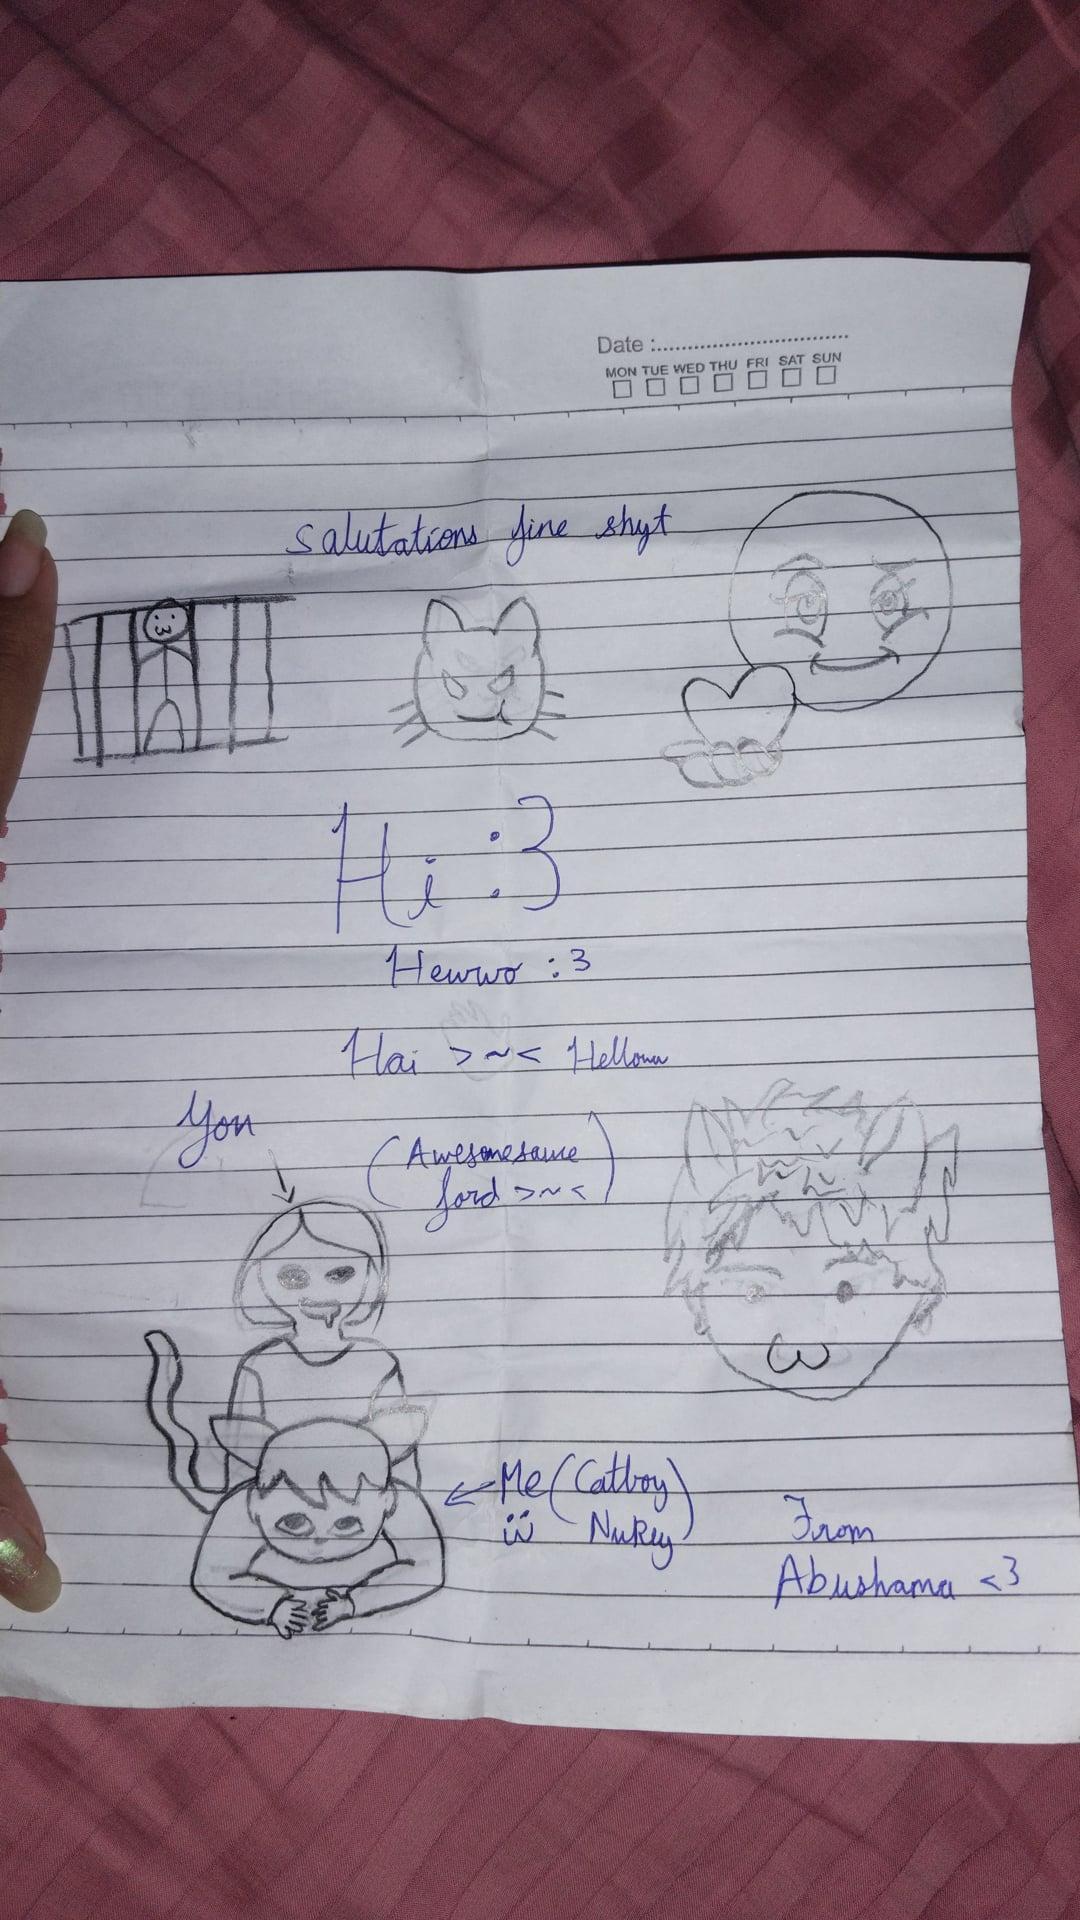 Date :................................
MON TUE WED THU FRI SAT SUN
Salutations fine shyt
Hi :3
Hewwo :3
Hai >~<
You
(Awesomesauce
ford >~<)
Me (Catboy
Nukey)
From
Abushama <3